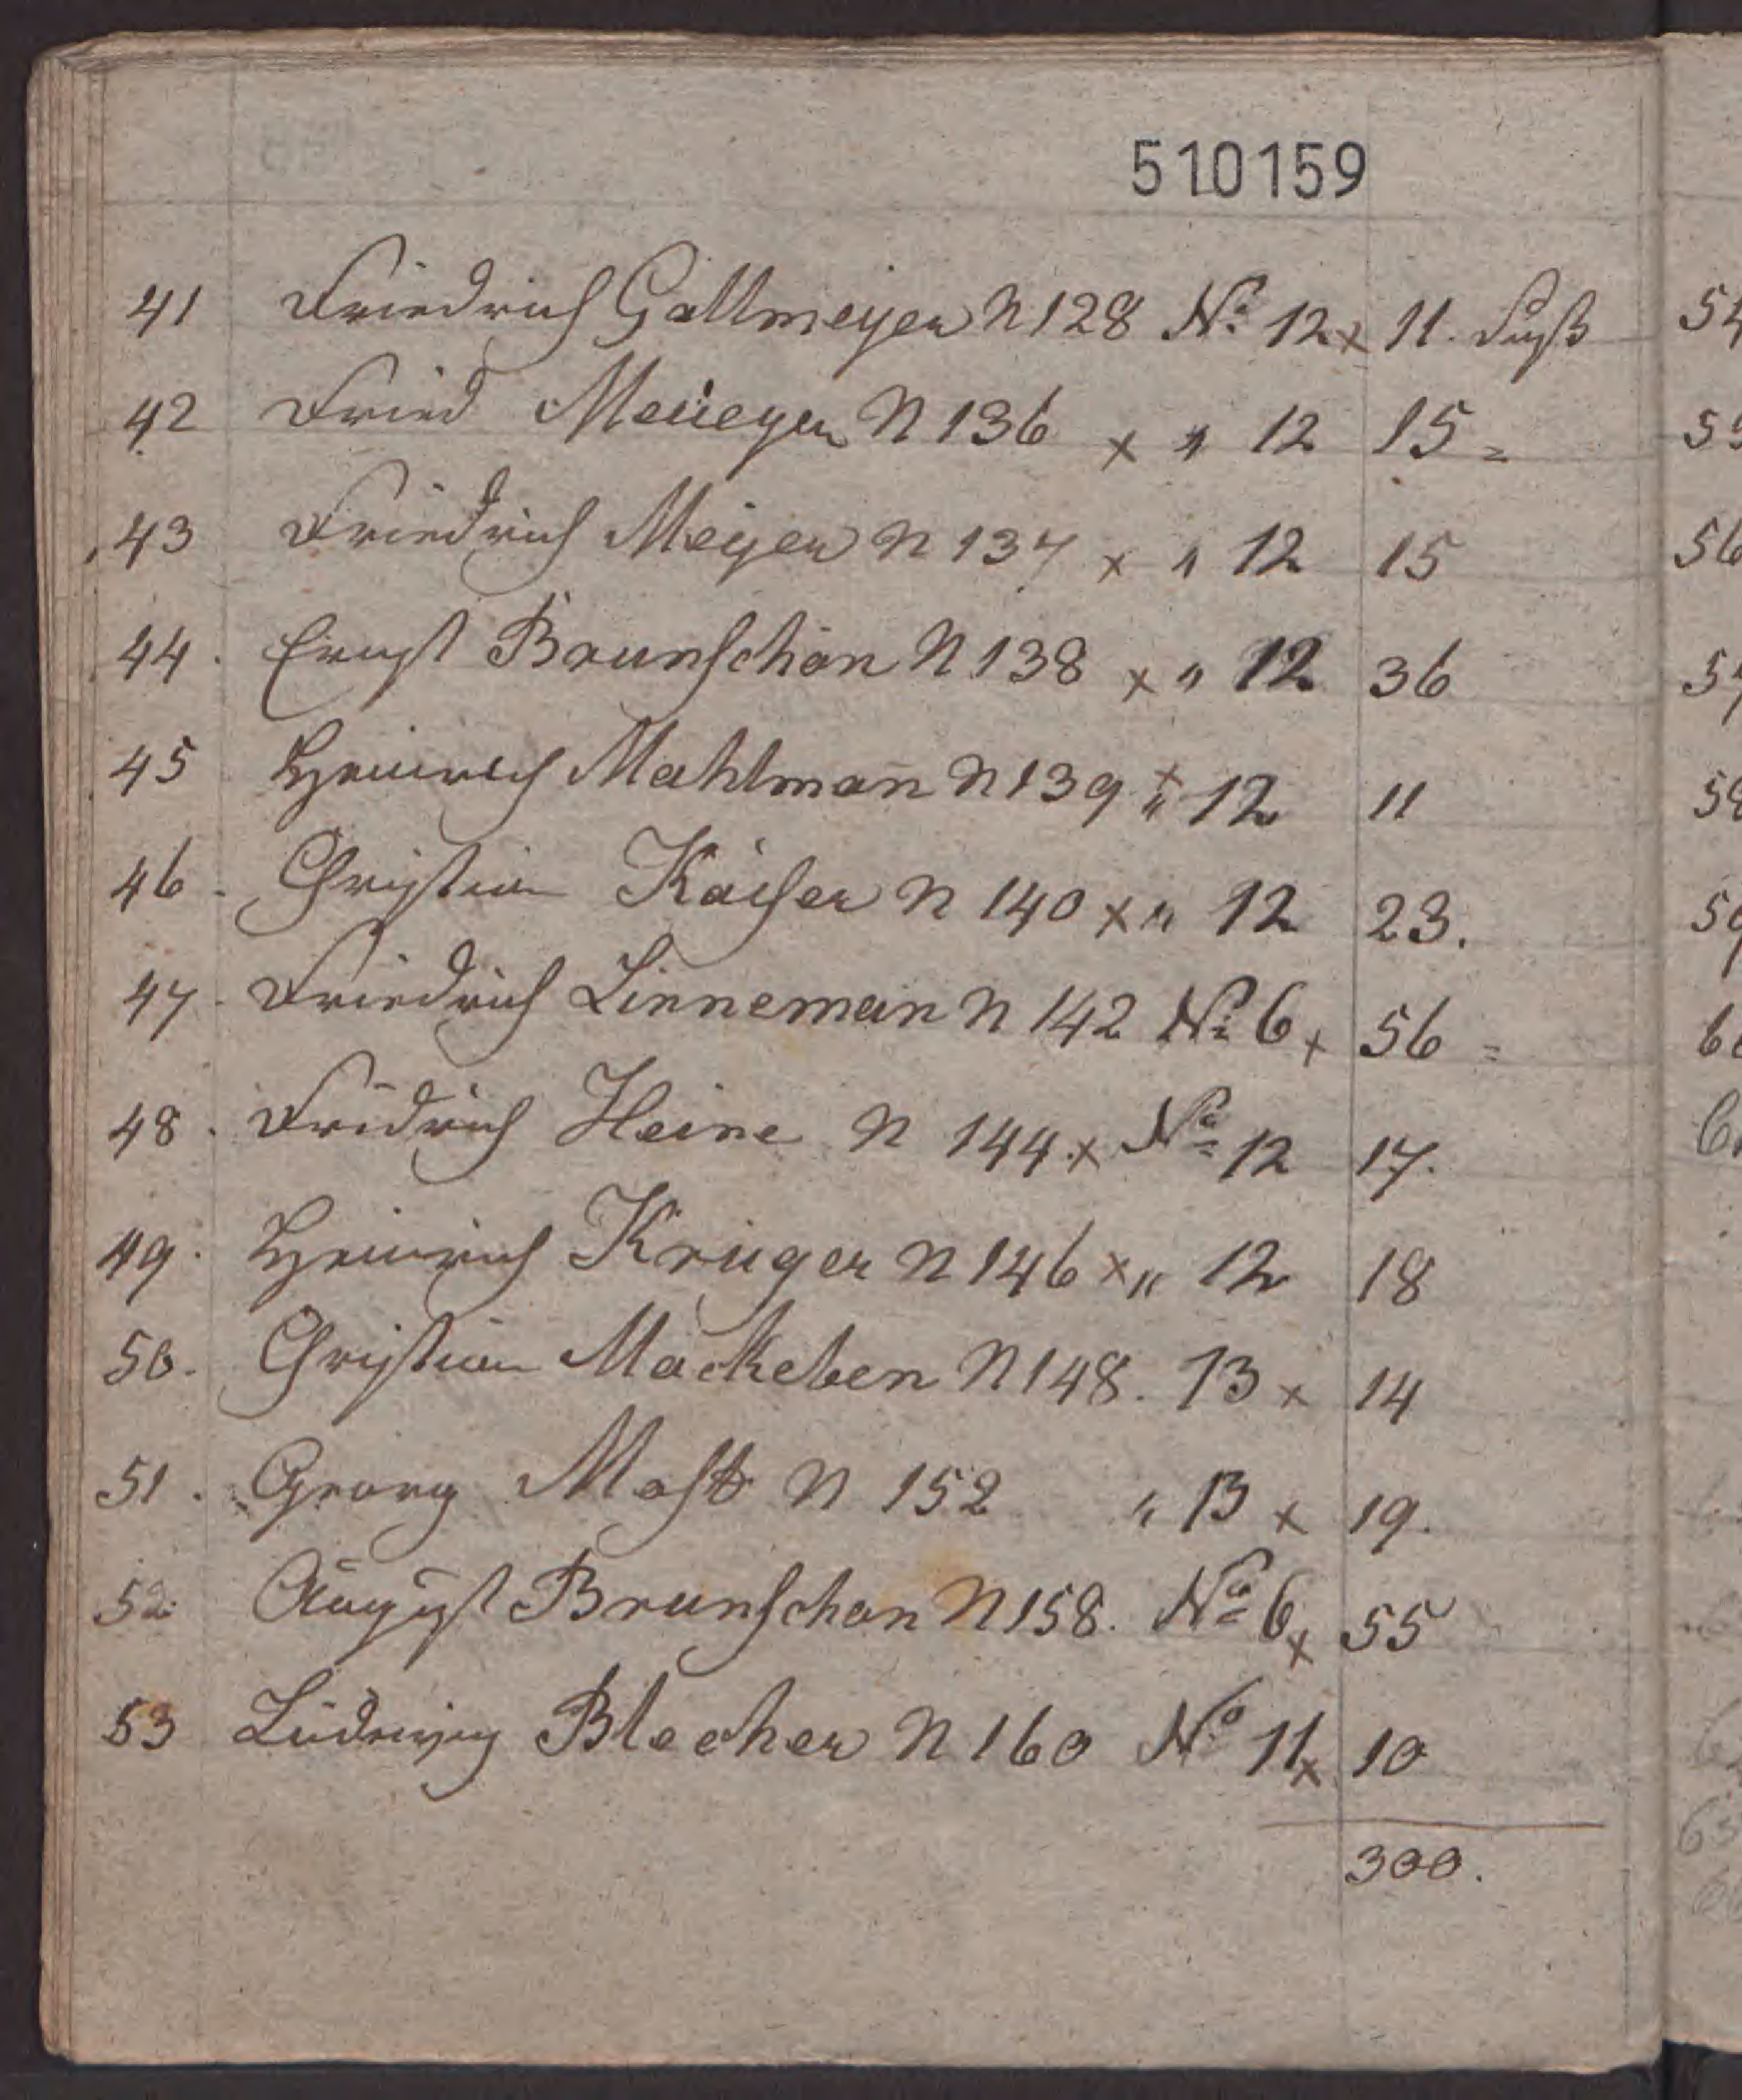 510159
41 Friedrich Gallmeyer N 128 No 12 x 11. Fuß
42 Fried Meüeyer N 136 x " 12 15 =
43 Friedrich Meyer N 137 x " 12 15
44. Ernst Brunschön N 138 x " 12 36
45 Heinrich Mahlman̄ N 139 x " 12 11
46. Christian Käiser N 140 x " 12 23.
47. Friedrich Linneman N 142 No 6 x 56 =
48. Fridrich Heine N 144. x No 12 17.
49. Heinrich Krüger N 146 x " 12 18
50. Christian Mackeben N 148. 13 x 14
51. Georg Most N 152 " 13 x 19.
52. August Brunschon N 158. No 6 x 55
53 Ludewig Blecher N 160 No 11 x 10
300.